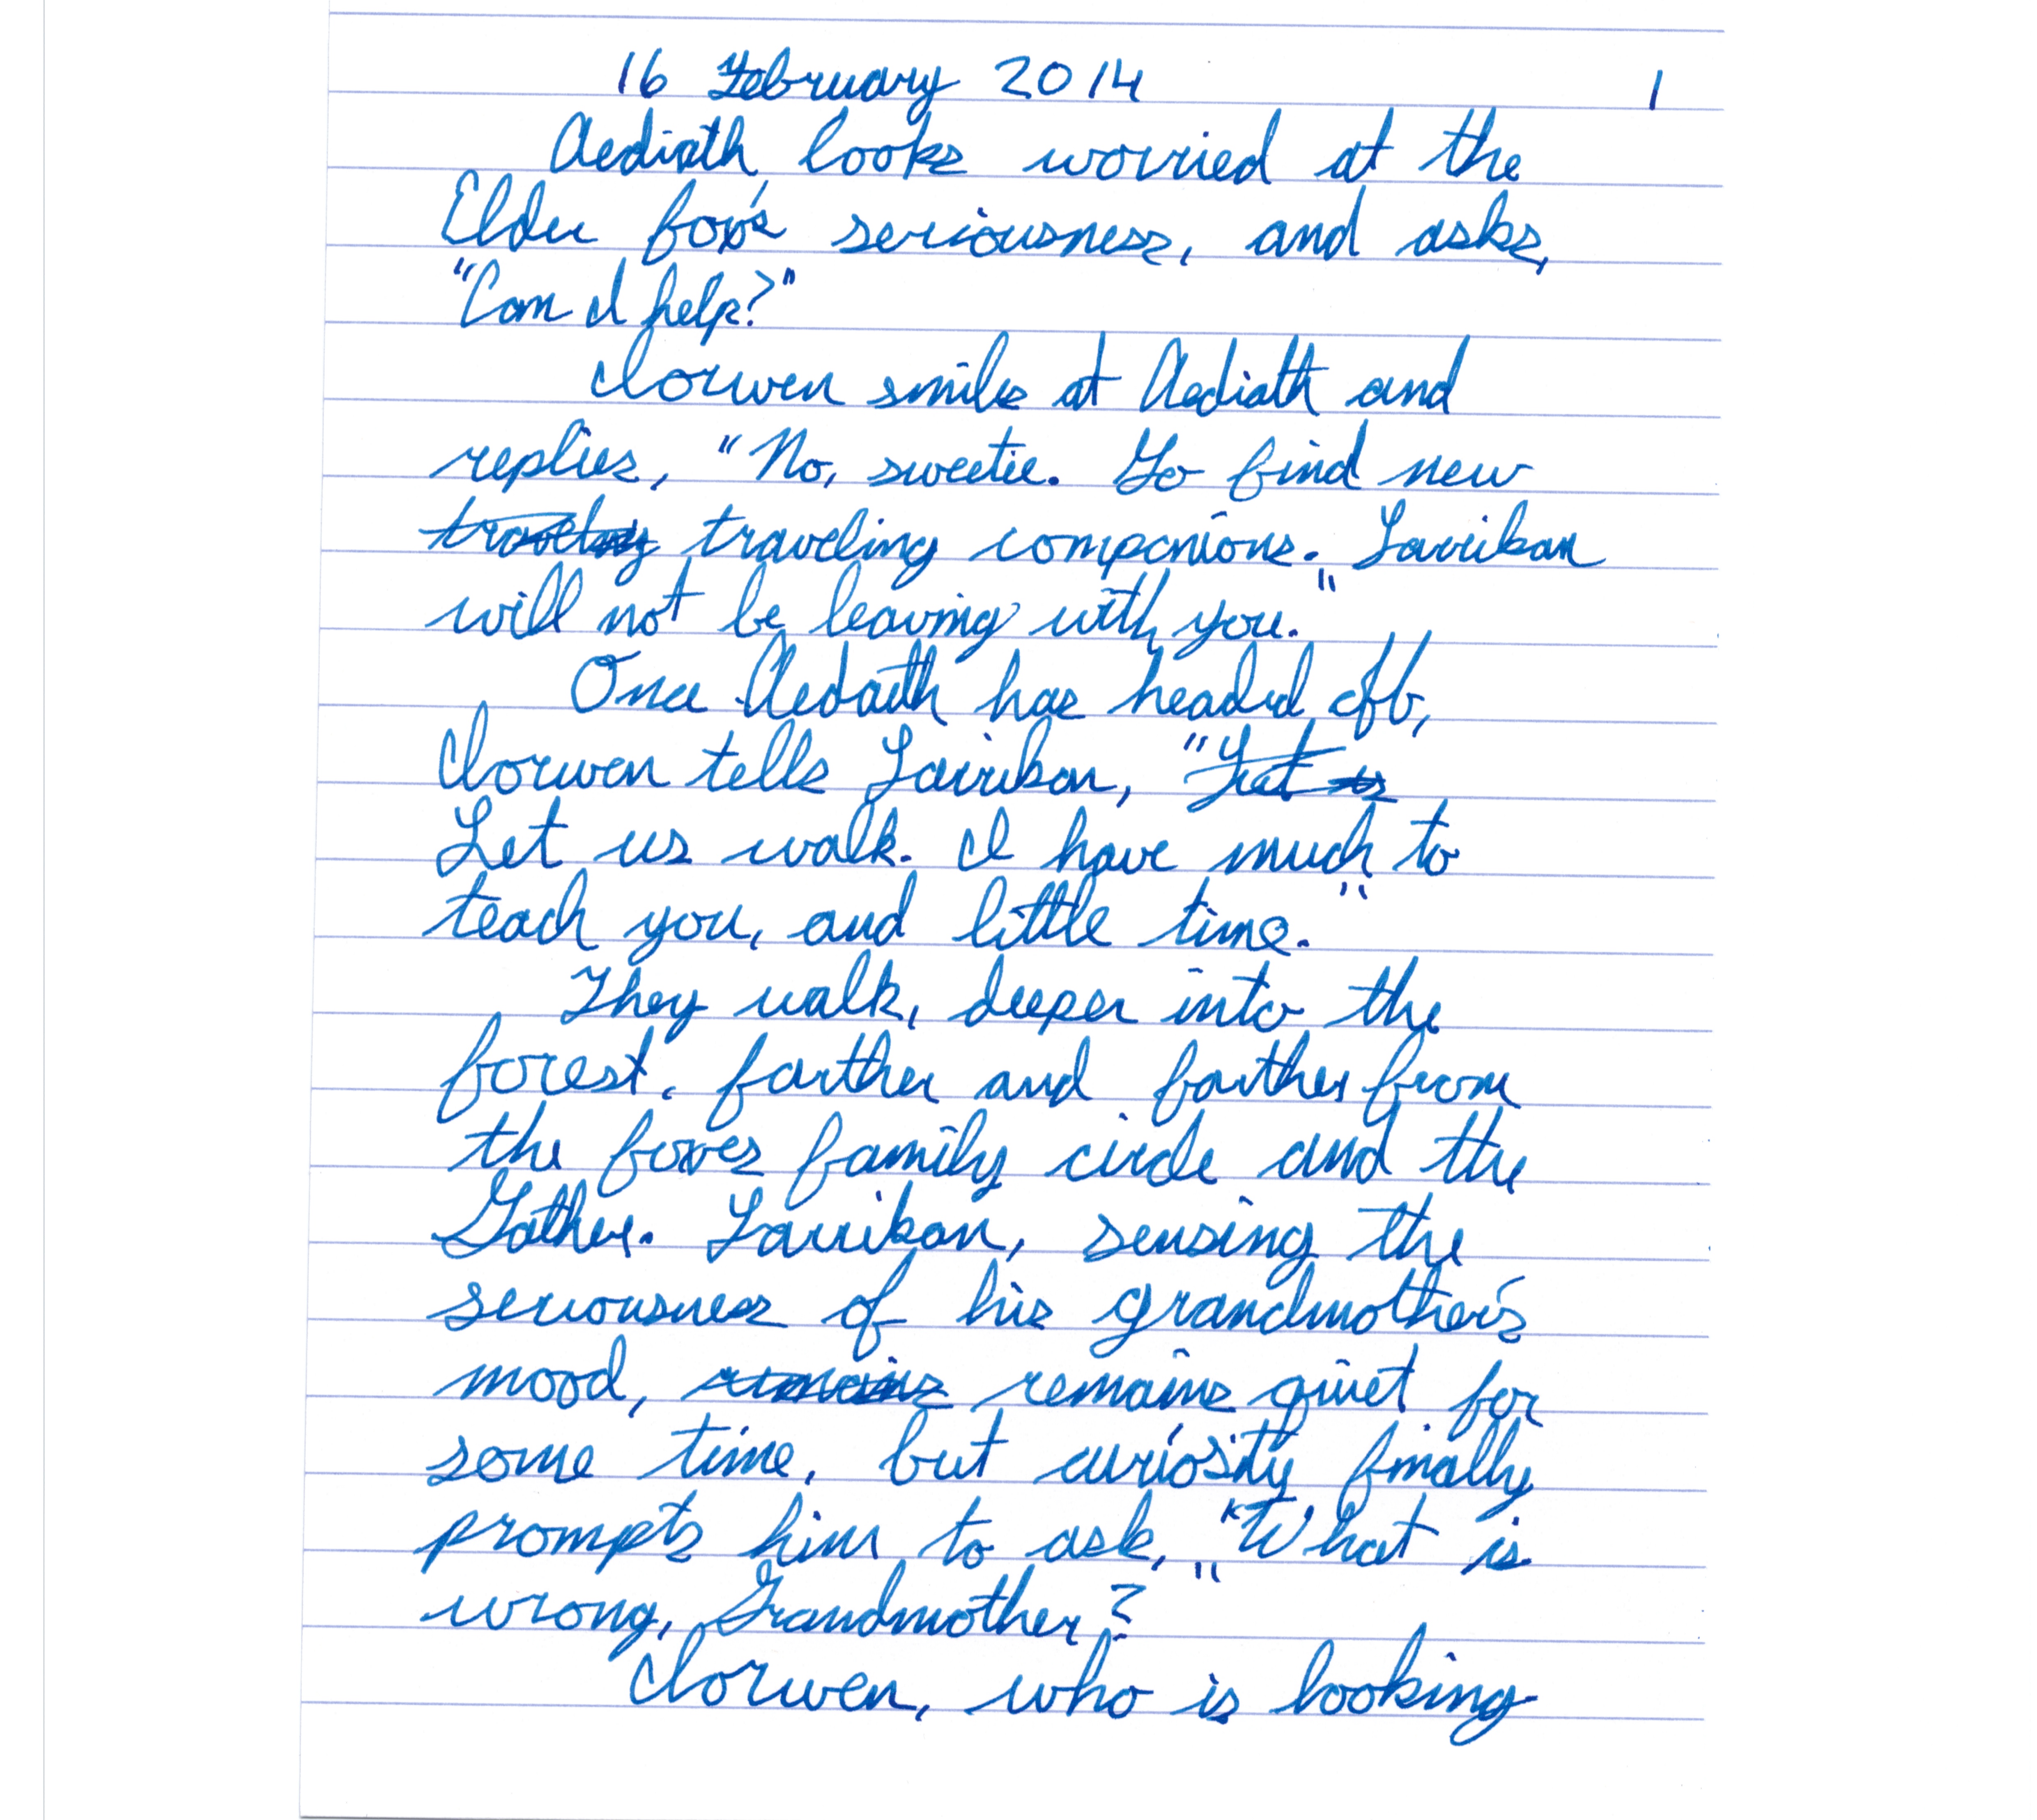 16 February 2014 1
Aediath looks worried at the
Elder fox's seriousness, and asks,
"Can I help?"
Iorwen smiles at Aediath and
replies, "No, sweetie. Go find new
traveling traveling companions. Larrikan
will not be leaving with you."
Once Aediath has headed off,
Iorwen tells Larrikan, "Let us
Let us walk. I have much to
teach you, and little time."
They walk, deeper into the
forest, farther and farther from
the foxes family circle and the
Gather. Larrikan, sensing the
seriousness of his grandmother's
mood, remains remains quiet for
some time, but curiosity finally
prompts him to ask, "What is
wrong, Grandmother?"
Iorwen, who is looking